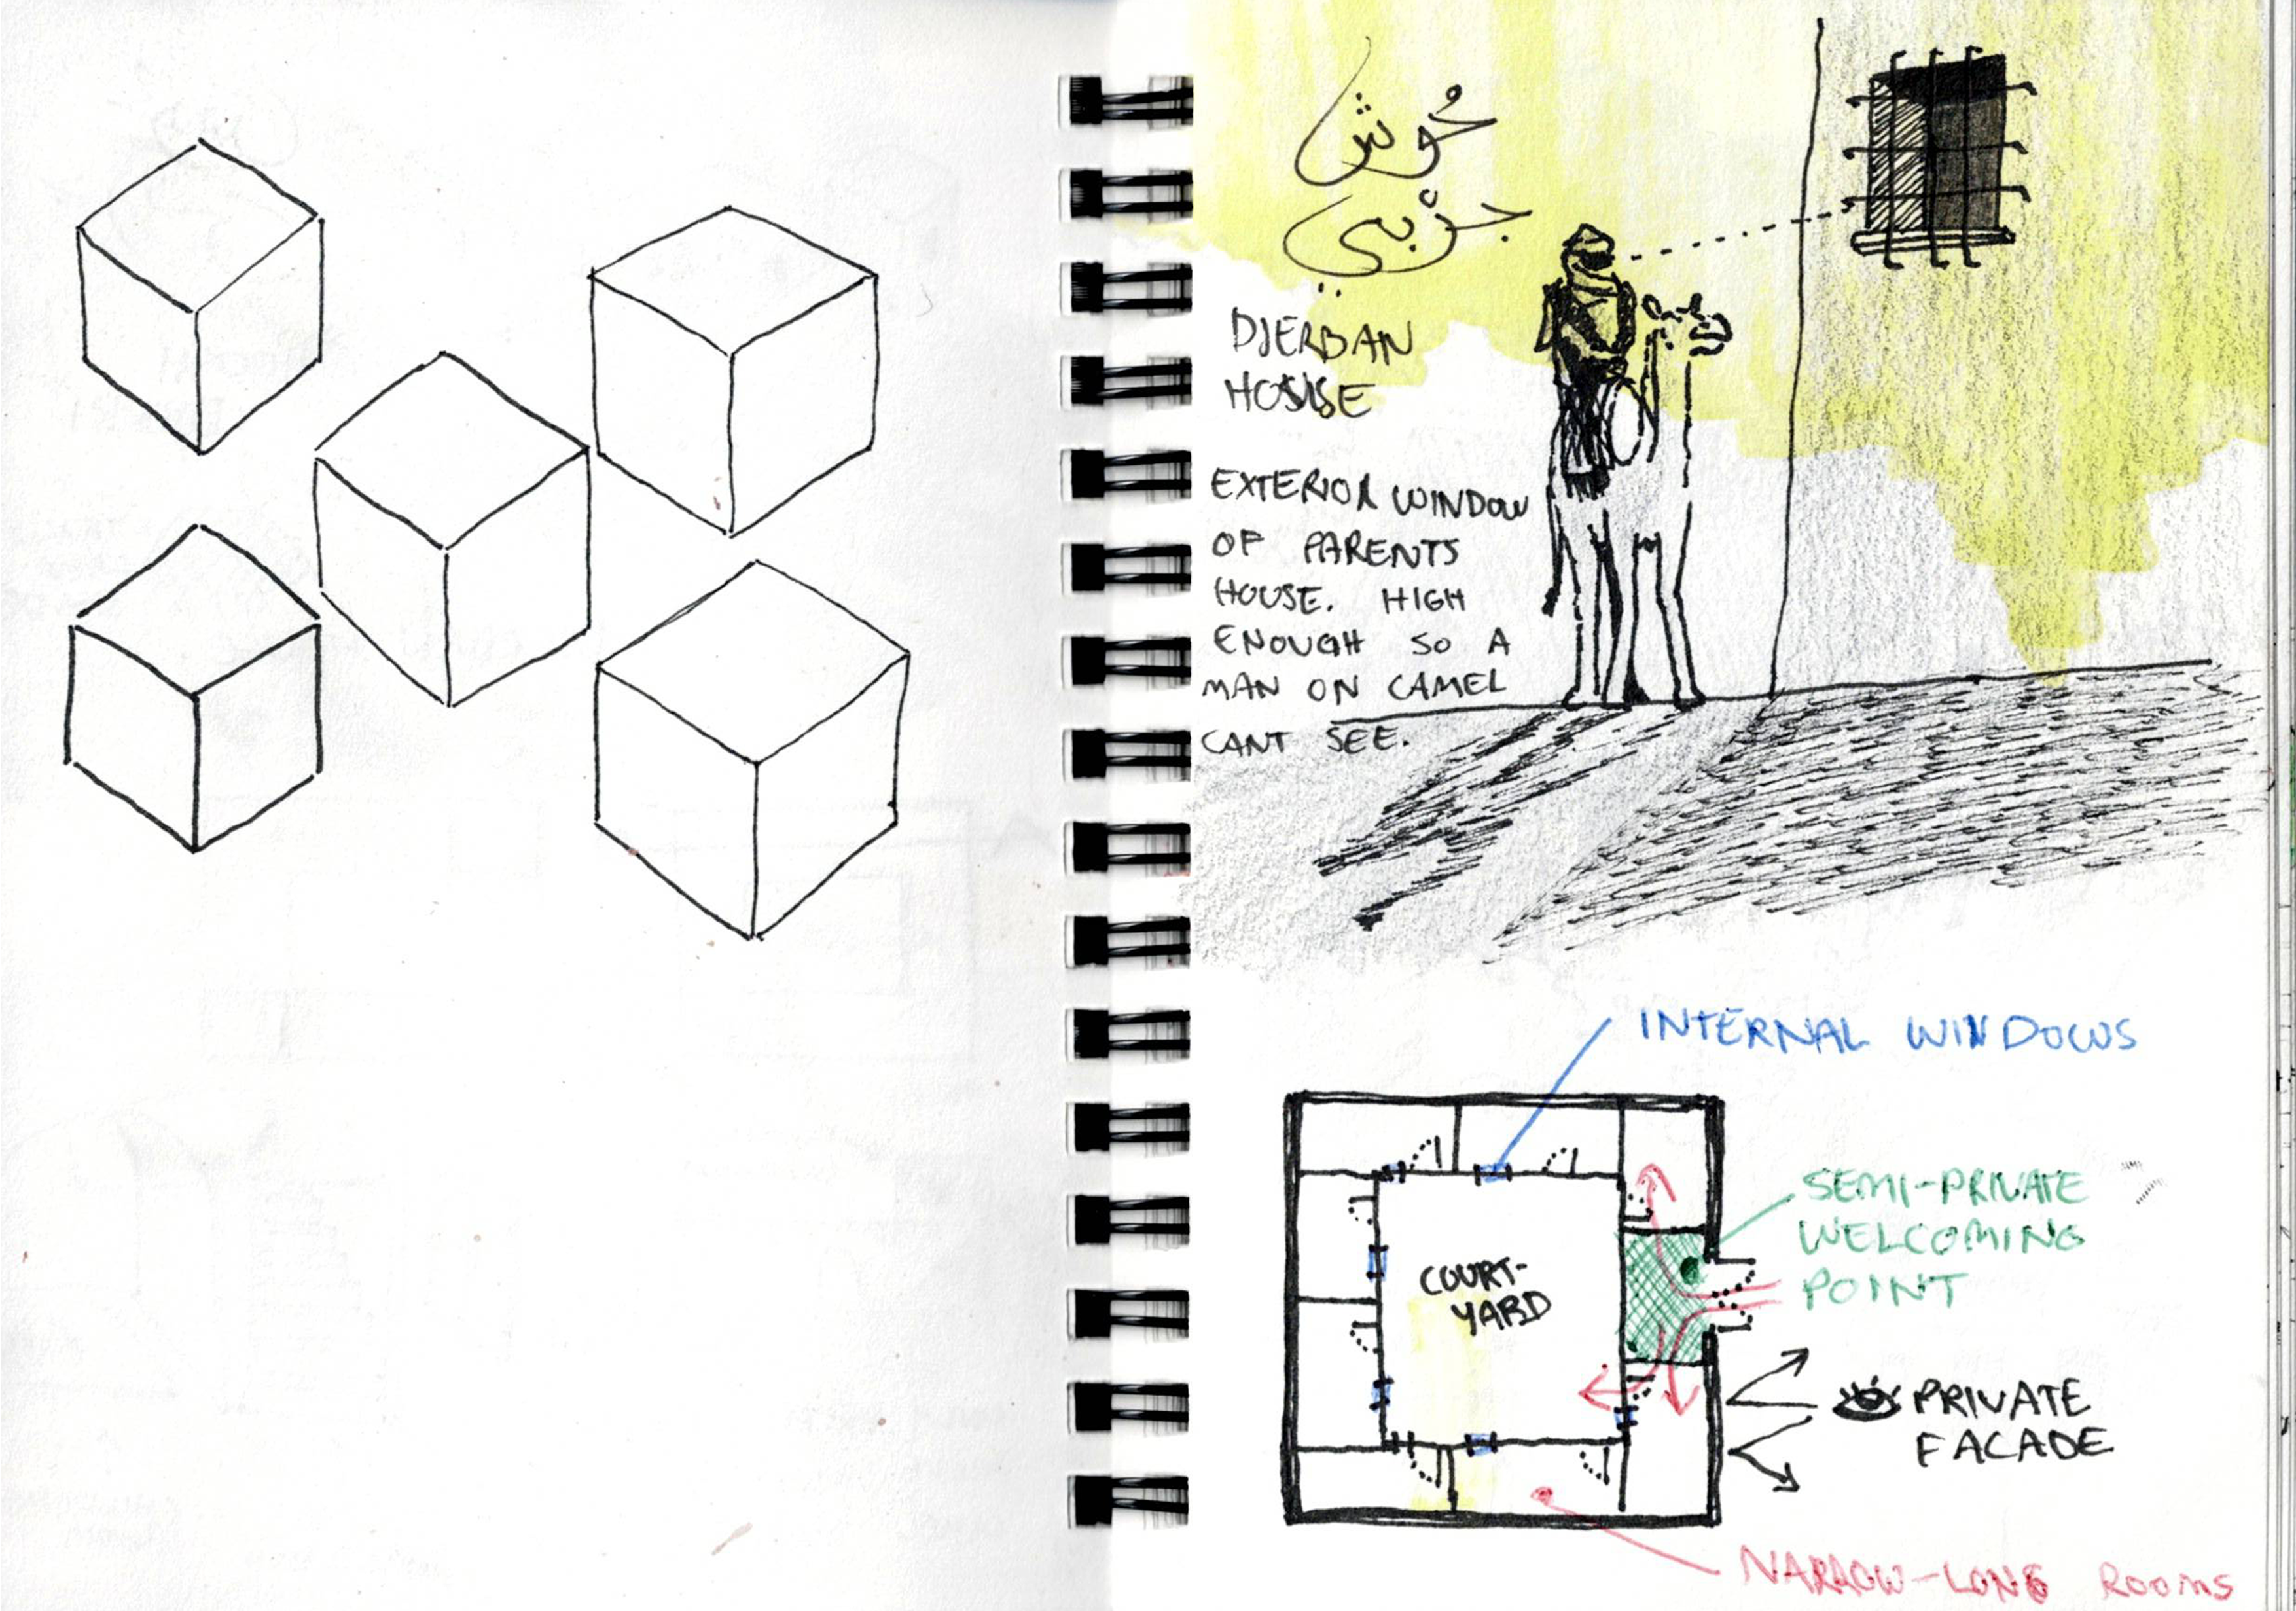 حُوش
جرْبي
DJERBAN
HOUSE
EXTERIOR WINDOW
OF PARENTS
HOUSE. HIGH
ENOUGH SO A
MAN ON CAMEL
CANT SEE.
INTERNAL WINDOWS
SEMI-PRIVATE
WELCOMING
POINT
COURT-
YARD
PRIVATE
FACADE
NARROW-LONG ROOMS